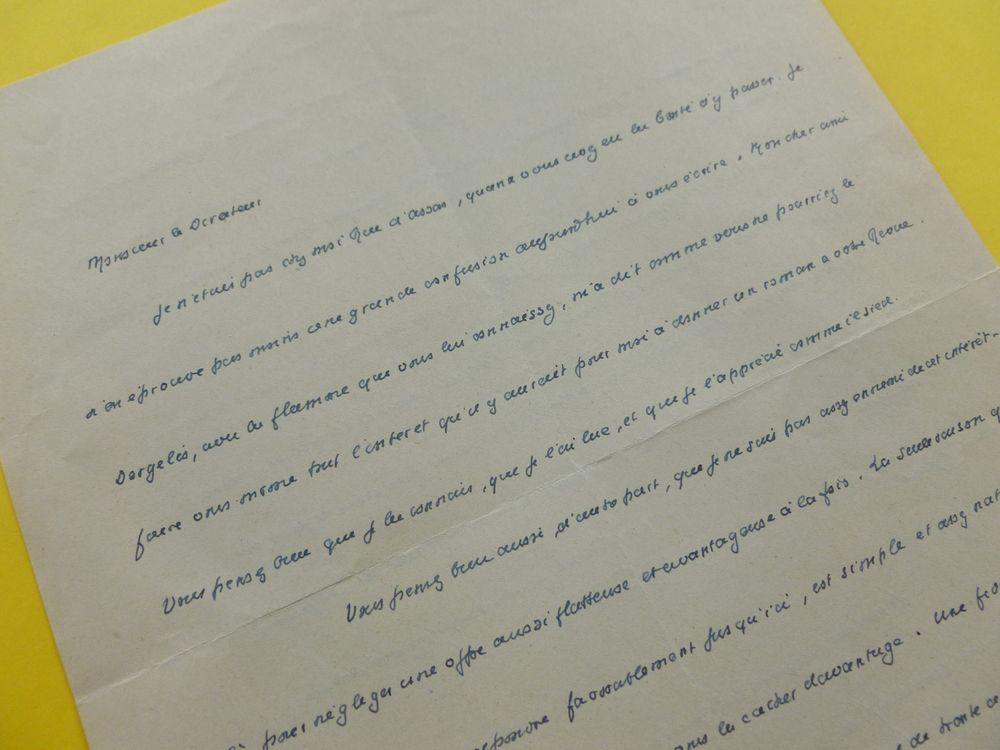 Monsieur le Directeur
Je n'étais pas chez moi rue d'Assas, quand vous avez eu la bonté d'y passer. Je
n'en éprouve pas moins une grande confusion aujourd'hui à vous écrire. Mon cher ami
Dorgelès, avec la flamme que vous lui connaissez, m'a dit comme vous ne pourriez le
faire vous-même tout l'intérêt qu'il y aurait pour moi à donner un roman à votre Revue.
Vous pensez bien que je la connais, que je l'ai lue, et que je l'apprécie comme il sied.
Vous pensez bien aussi, d'autre part, que je ne suis pas assez ennemi de cet intérêt-
là pour négliger une offre aussi flatteuse et avantageuse à la fois. La seule raison q
répondre favorablement jusqu'ici, est simple et assez nat
vous la cacher davantage. Une fio
de trente a